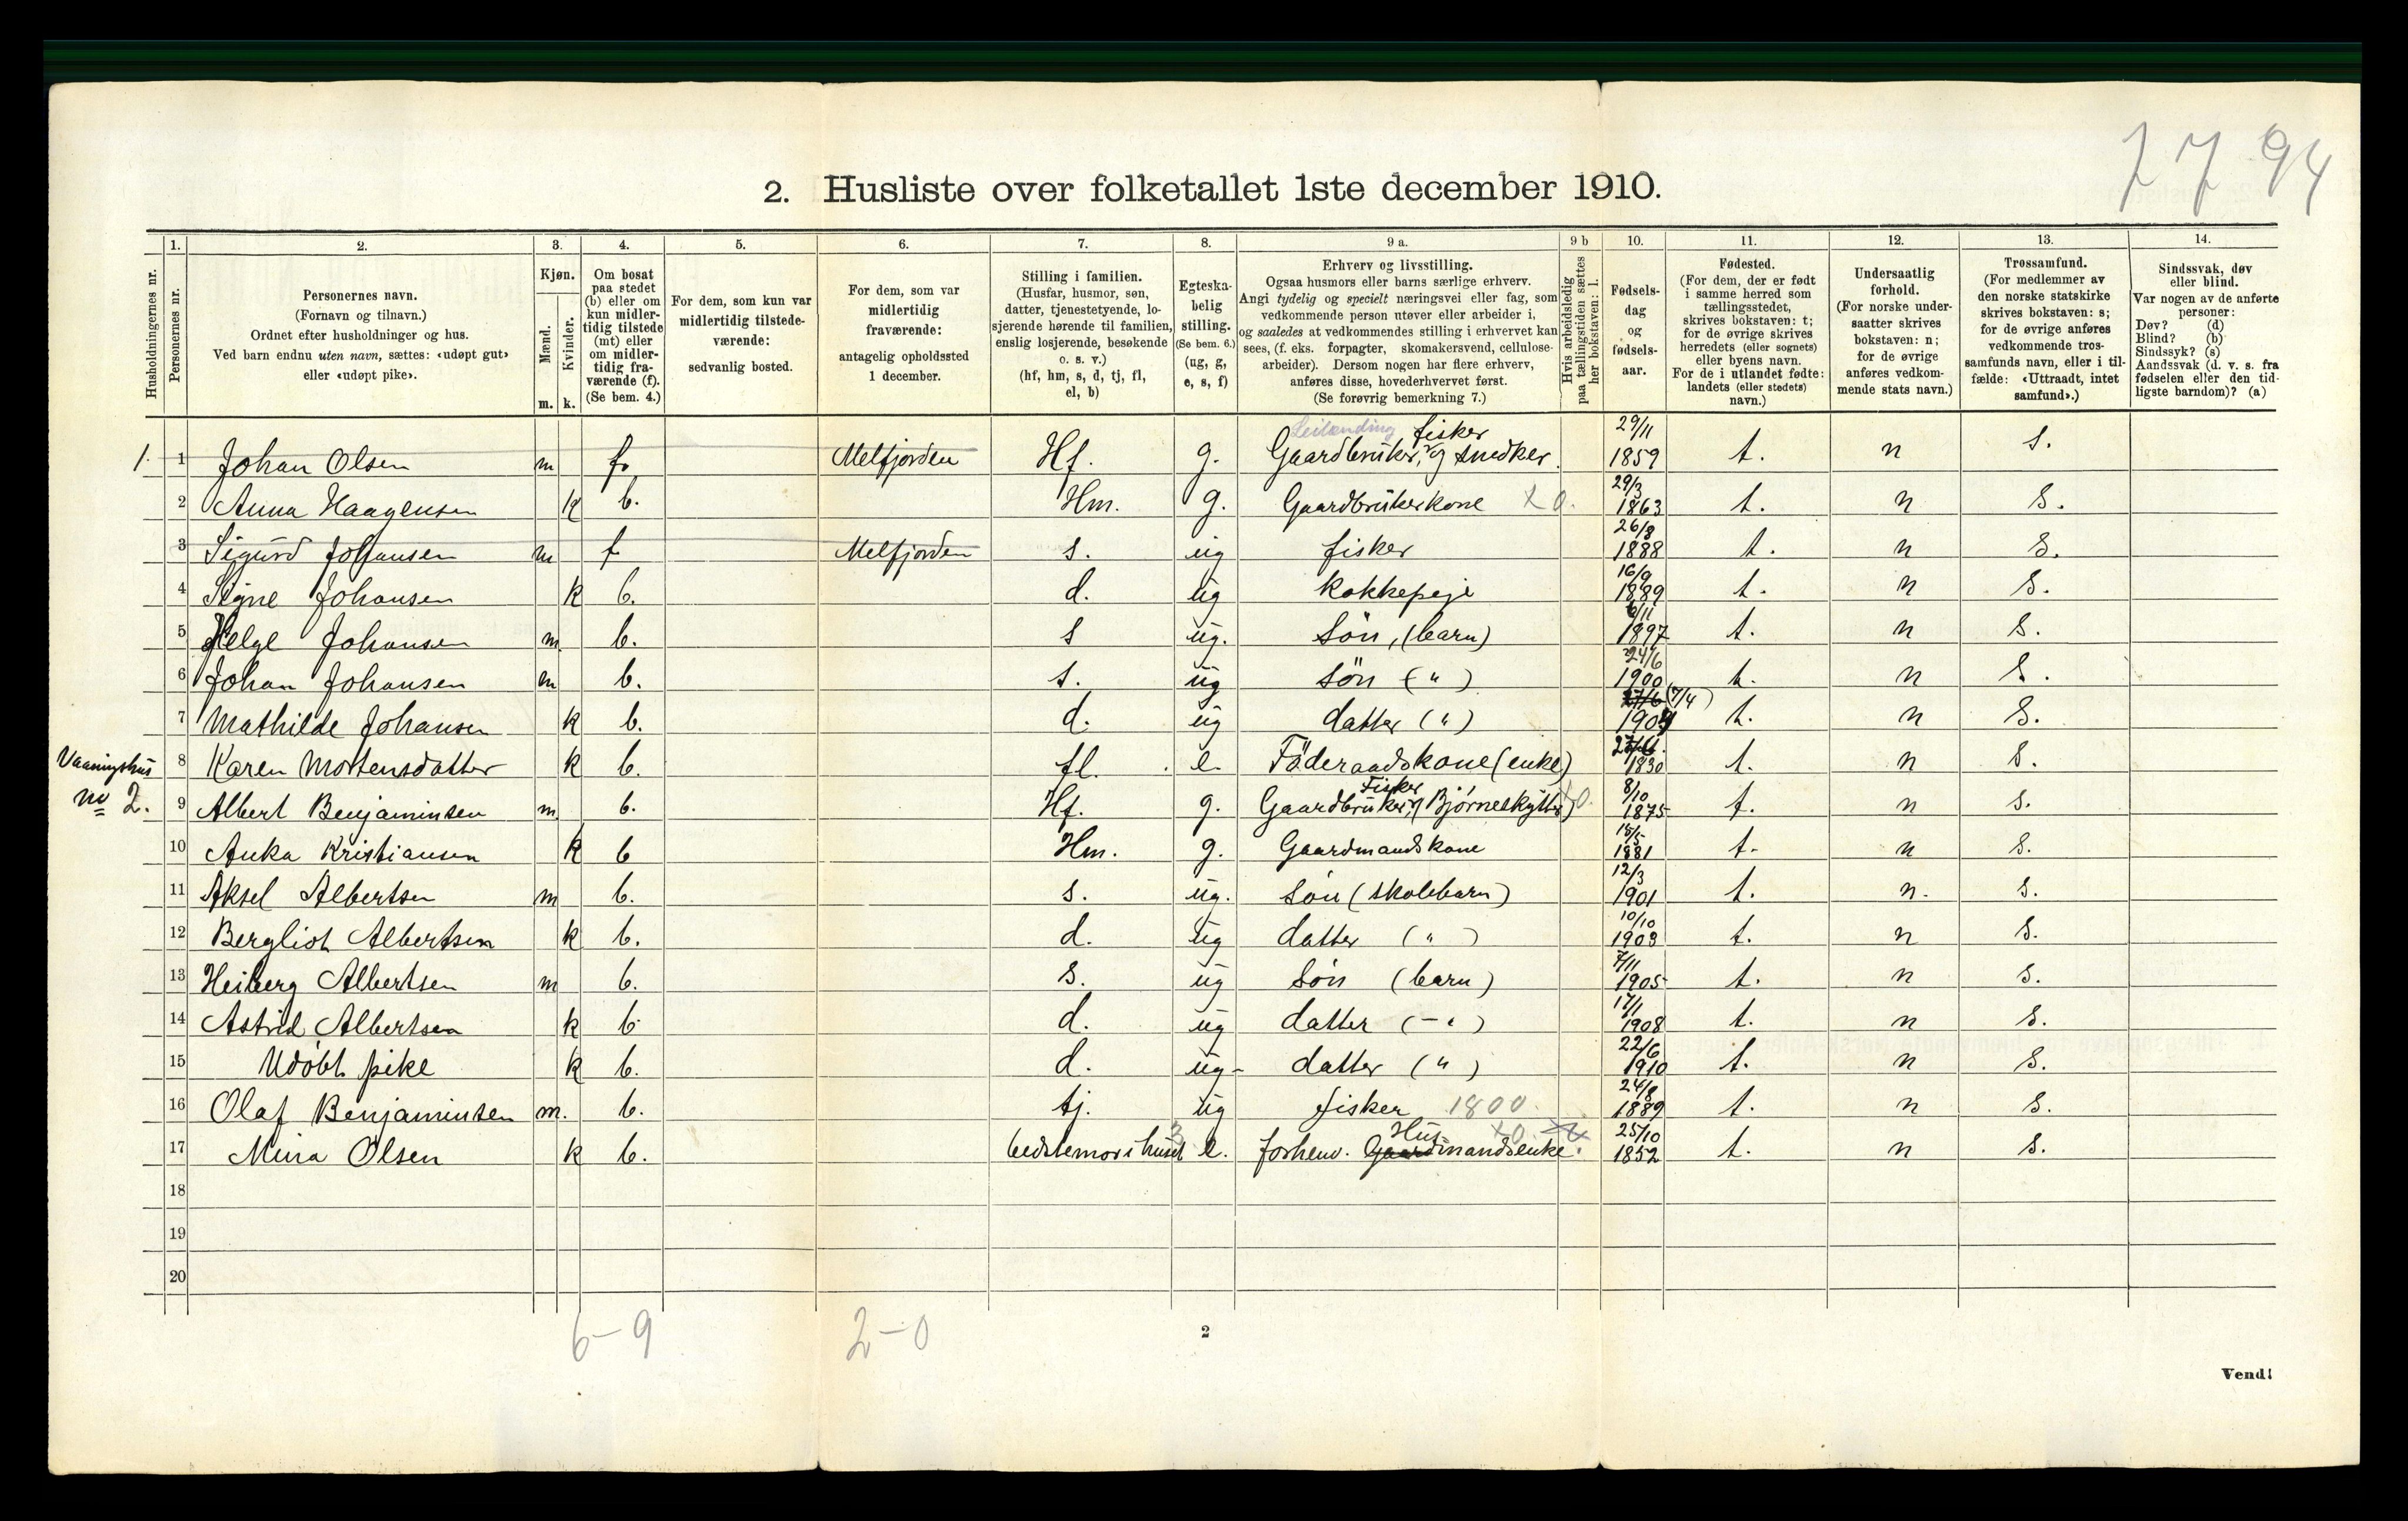 7 7 94
2. Husliste over folketallet 1ste december 1910.
1. 2. 3. 4. 5. 6. 7. 8. 9 a. 9 b 10. 11. 12. 13. 14.
Husholdningernes nr.
Personernes nr.
Personernes navn.
(Fornavn og tilnavn.)
Ordnet efter husholdninger og hus.
Ved barn endnu uten navn, sættes: «udøpt gut»
eller «udøpt pike».
Kjøn.
Mænd.
Kvinder.
m. k.
Om bosat
paa stedet
(b) eller om
kun midler-
tidig tilstede
(mt) eller
om midler-
tidig fra-
værende (f).
(Se bem. 4.)
For dem, som kun var
midlertidig tilstede-
værende:
sedvanlig bosted.
For dem, som var
midlertidig
fraværende:
antagelig opholdssted
1 december.
Stilling i familien.
(Husfar, husmor, søn,
datter, tjenestetyende, lo-
sjerende hørende til familien,
enslig losjerende, besøkende
o. s. v.)
(hf, hm, s, d, tj, fl,
el, b)
Egteska-
belig
stilling.
(Se bem. 6.)
(ug, g,
e, s, f)
Erhverv og livsstilling.
Ogsaa husmors eller barns særlige erhverv.
Angi tydelig og specielt næringsvei eller fag, som
vedkommende person utøver eller arbeider i,
og saaledes at vedkommendes stilling i erhvervet kan
sees, (f. eks. forpagter, skomakersvend, cellulose-
arbeider). Dersom nogen har flere erhverv,
anføres disse, hovederhvervet først.
(Se forøvrig bemerkning 7.)
Hvis arbeidsledig
paa tællingstiden sættes
her bokstaven: l.
Fødsels-
dag
og
fødsels-
aar.
Fødested.
(For dem, der er født
i samme herred som
tællingsstedet,
skrives bokstaven: t;
for de øvrige skrives
herredets (eller sognets)
eller byens navn.
For de i utlandet fødte:
landets (eller stedets)
navn.)
Undersaatlig
forhold.
(For norske under-
saatter skrives
bokstaven: n;
for de øvrige
anføres vedkom-
mende stats navn.)
Trossamfund.
(For medlemmer av
den norske statskirke
skrives bokstaven: s;
for de øvrige anføres
vedkommende tros-
samfunds navn, eller i til-
fælde: «Uttraadt, intet
samfund».)
Sindssvak, døv
eller blind.
Var nogen av de anførte
personer:
Døv? (d)
Blind? (b)
Sindssyk? (s)
Aandssvak (d. v. s. fra
fødselen eller den tid-
ligste barndom)? (a)
Leilænding fisker 29/11
1. 1 Johan Olsen m f. Melfjorden Hf. g. Gaardbruker, og snedker. 1859 t. n s.
2 Anna Haagensen k b. Hm. g. Gaardbrukerkone x 0. 29/3 1863 t. n s.
3 Sigurd Johansen m f Melfjorden s. ug fisker 26/8 1888 t. n s.
4 Signe Johansen k b. d. ug kokkepige 16/9 1889 t. n s.
5 Helge Johansen m. b. s ug. Søn, (barn) 6/11 1897 t. n s.
6 Johan Johansen m b. s. ug Søn ( " ) 24/6 1900 t. n s.
7 Mathilde Johansen k b. d. ug datter ( " ) 27/6 (7/4) 1904 t. n s.
Vaaningshus
8 Karen Mortensdatter k b. fl. e. Föderaadskone (enke) 1830 t. n s.
Fisker
no 2. 9 Albert Benjaminsen m b. Hf. g. Gaardbruker, og Bjørneskytter) 8/10 1875 t. n s.
10 Anka Kristiansen k b Hm. g. Gaardmandskone 15/5 1881 t. n s.
11 Aksel Albertsen m b. s. ug. Søn (skolebarn) 12/3 1901 t. n. s.
12 Bergliot Albertsen k b. d. ug datter ( " ) 10/10 1903 t. n s.
13 Heiberg Albertsen m b. s. ug Søn (barn) 7/11 1905 t. n s.
14 Astrid Albertsen k b d. ug datter ( - " ) 17/1 1908 t. n s.
15 Udöbt pike k b. d. ug- datter ( " ) 22/6 1910 t. n s.
16 Olaf Benjaminsen m. b. tj. ug fisker 1800 24/8 1889 t. n s.
Hus x0
17 Mina Olsen k b. bedstemor i huset e. forhenv. Gaardmandsenke. 25/10 1852 t. n s.
18
19
20
6-9 2-0
2
Vend!